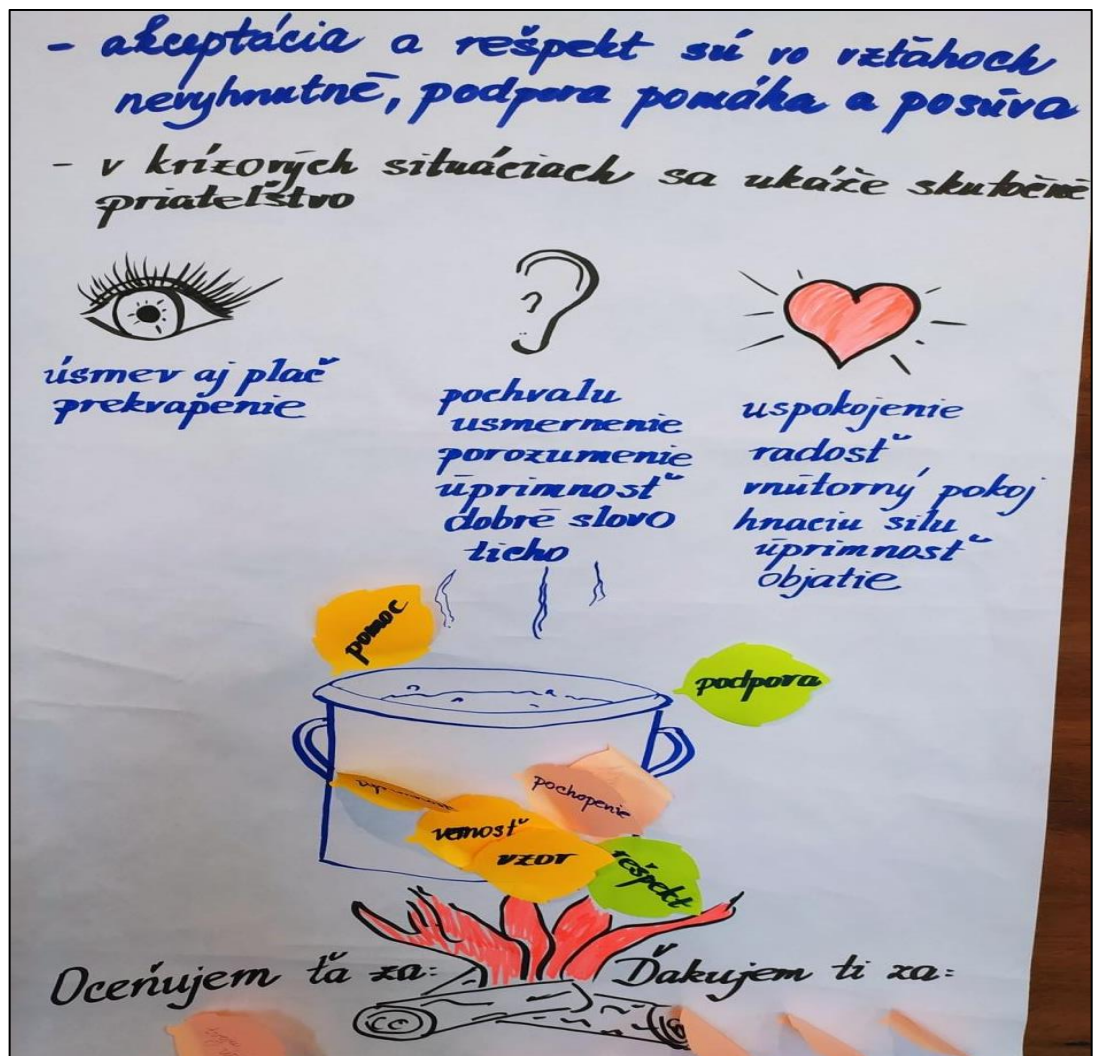 - akceptácia a rešpekt sú vo vzťahoch
nevyhnutné, podpora pomáha a posúva
- v krízových situáciach sa ukáže skutočné
priateľstvo
úsmev aj plač
prekvapenie
pochvalu
usmernenie
porozumenie
úprimnosť
dobré slovo
ticho
uspokojenie
radosť
vnútorný pokoj
hnaciu silu
úprimnosť
objatie
pomoc
podpora
pochopenie
vernosť
vzor
rešpekt
Oceňujem ťa za:
Ďakujem ti za: